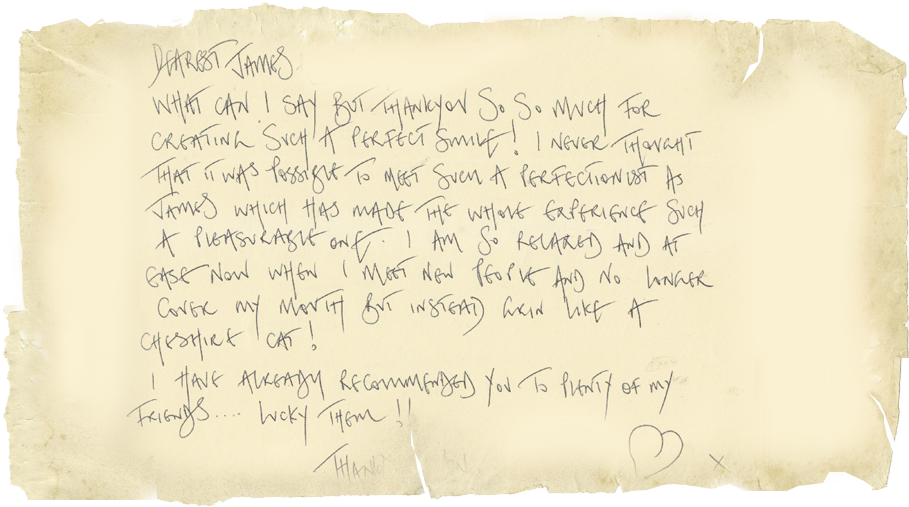 DEAREST JAMES
WHAT CAN I SAY BUT THANKYOU SO SO MUCH FOR
CREATING SUCH A PERFECT SMILE! I NEVER THOUGHT
THAT IT WAS POSSIBLE TO MEET SUCH A PERFECTIONIST AS
JAMES WHICH HAS MADE THE WHOLE EXPERIENCE SUCH
A PLEASURABLE ONE. I AM SO RELAXED AND AT
EASE NOW WHEN I MEET NEW PEOPLE AND NO LONGER
COVER MY MOUTH BUT INSTEAD GRIN LIKE A
CHESHIRE CAT!
I HAVE ALREADY RECOMMENDED YOU TO PLENTY OF MY
FRIENDS.... LUCKY THEM!!
X